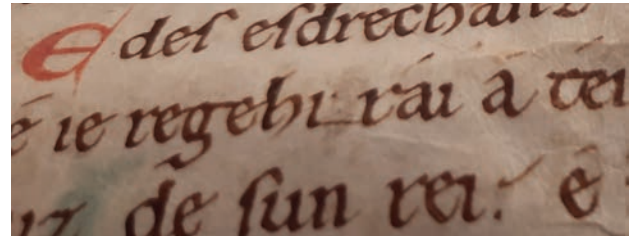 E des esdrechanz
é ie regehirrái á tei
uz de sun rei. é